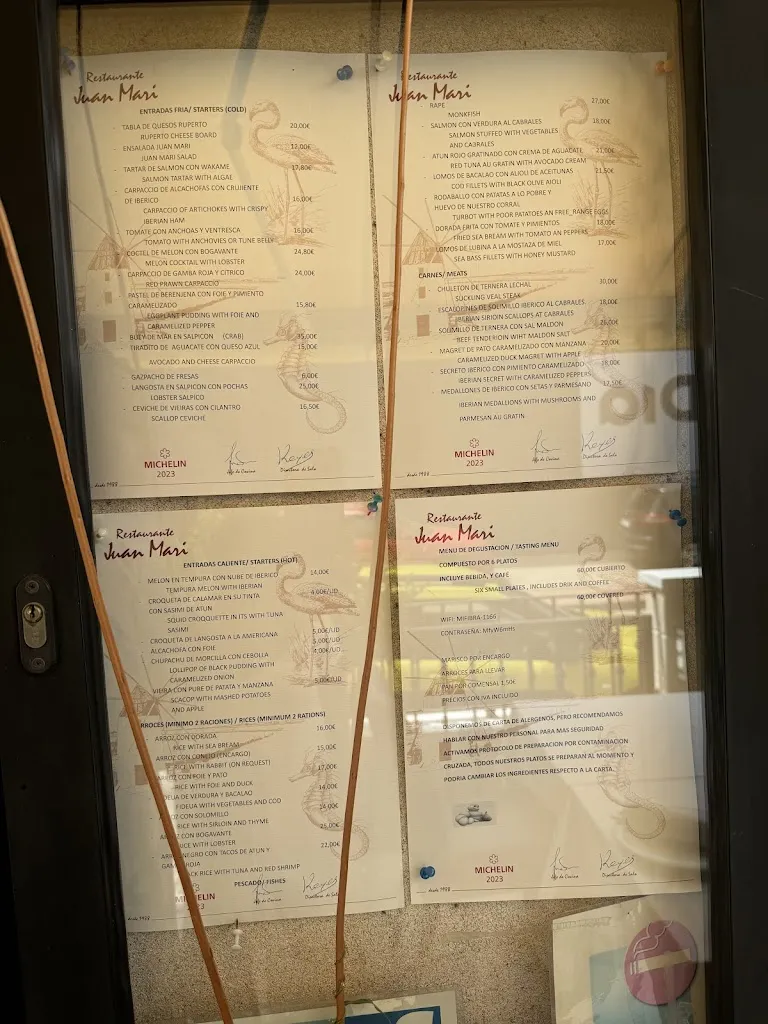 Restaurante
Juan Mari
ENTRADAS FRIA/ STARTERS (COLD)
- TABLA DE QUESOS RUPERTO 20,00€
RUPERTO CHEESE BOARD
- ENSALADA JUAN MARI 12,00€
JUAN MARI SALAD
- TARTAR DE SALMON CON WAKAME 17,80€
SALMON TARTAR WITH ALGAE
- CARPACCIO DE ALCACHOFAS CON CRUJIENTE
DE IBERICO 16,00€
CARPACCIO OF ARTICHOKES WITH CRISPY
IBERIAN HAM
- TOMATE CON ANCHOAS Y VENTRESCA 16,00€
TOMATO WITH ANCHOVIES OR TUNE BELLY
- COCTEL DE MELON CON BOGAVANTE 24,80€
MELON COCKTAIL WITH LOBSTER
- CARPACCIO DE GAMBA ROJA Y CITRICO 24,00€
RED PRAWN CARPACCIO
- PASTEL DE BERENJENA CON FOIE Y PIMIENTO
CARAMELIZADO 15,80€
EGGPLANT PUDDING WITH FOIE AND
CARAMELIZED PEPPER
- BUEY DE MAR EN SALPICON (CRAB) 35,00€
- TIRADITO DE AGUACATE CON QUESO AZUL 15,00€
AVOCADO AND CHEESE CARPACCIO
- GAZPACHO DE FRESAS 6,00€
- LANGOSTA EN SALPICON CON POCHAS 25,00€
LOBSTER SALPICO
- CEVICHE DE VIEIRAS CON CILANTRO 16,50€
SCALLOP CEVICHE
MICHELIN
2023
Jefe de Cocina
Reyes
Directora de Sala
desde 1988
Restaurante
Juan Mari
- RAPE 27,00€
MONKFISH
- SALMON CON VERDURA AL CABRALES 18,00€
SALMON STUFFED WITH VEGETABLES
AND CABRALES
- ATUN ROJO GRATINADO CON CREMA DE AGUACATE 21,00€
RED TUNA AU GRATIN WITH AVOCADO CREAM
- LOMOS DE BACALAO CON ALIOLI DE ACEITUNAS 21,50€
COD FILLETS WITH BLACK OLIVE AIOLI
- RODABALLO CON PATATAS A LO POBRE Y
HUEVO DE NUESTRO CORRAL
TURBOT WITH POOR PATATOES AN FREE_RANGE EGGS
- DORADA FRITA CON TOMATE Y PIMIENTOS 18,00€
FRIED SEA BREAM WITH TOMATO AN PEPPERS
- LOMOS DE LUBINA A LA MOSTAZA DE MIEL 17,00€
SEA BASS FILLETS WITH HONEY MUSTARD
CARNES/ MEATS
- CHULETON DE TERNERA LECHAL 30,00€
SUCKLING VEAL STEAK
- ESCALOPINES DE SOLIMILLO IBERICO AL CABRALES 18,00€
IBERIAN SIRIOIN SCALLOPS AT CABRALES
- SOLIMILLO DE TERNERA CON SAL MALDON 26,00€
BEEF TENDERION WIHT MALDON SALT
- MAGRET DE PATO CARAMELIZADO CON MANZANA 20,00€
CARAMELIZED DUCK MAGRET WITH APPLE
- SECRETO IBERICO CON PIMIENTO CARAMELIZADO 18,00€
IBERIAN SECRET WITH CARAMELIZED PEPPERS
- MEDALLONES DE IBERICO CON SETAS Y PARMESANO 17,50€
IBERIAN MEDALLIONS WITH MUSHROOMS AND
PARMESAN AU GRATIN
MICHELIN
2023
Jefe de Cocina
Reyes
Directora de Sala
desde 1988
Restaurante
Juan Mari
ENTRADAS CALIENTE/ STARTERS (HOT)
MELON EN TEMPURA CON NUBE DE IBERICO 14,00€
TEMPURA MELON WITH IBERIAN
CROQUETA DE CALAMAR EN SU TINTA 4,00€/UD
CON SASIMI DE ATUN
SQUID CROQQUETTE IN ITS WITH TUNA
SASIMI
CROQUETA DE LANGOSTA A LA AMERICANA 5,00€/UD
ALCACHOFA CON FOIE 5,00€/UD
CHUPACHU DE MORCILLA CON CEBOLLA 4,00€/UD
LOLLIPOP OF BLACK PUDDING WITH
CARAMELIZED ONION
VIEIRA CON PURE DE PATATA Y MANZANA 5,00€/UD
SCACOP WITH MASHED POTATOES
AND APPLE
ARROCES (MINIMO 2 RACIONES) / RICES (MINIMUM 2 RATIONS)
ARROZ CON DORADA 16,00€
RICE WITH SEA BREAM
ARROZ CON CONEJO (ENCARGO) 15,00€
RICE WITH RABBIT (ON REQUEST)
ARROZ CON FOIE Y PATO 17,00€
RICE WITH FOIE AND DUCK
FIDEUA DE VERDURA Y BACALAO 14,00€
FIDEUA WITH VEGETABLES AND COD
ARROZ CON SOLOMILLO 14,00€
RICE WITH SIRLOIN AND THYME
ARROZ CON BOGAVANTE 25,00€
RICE WITH LOBSTER
ARROZ NEGRO CON TACOS DE ATUN Y 22,00€
GAMBA ROJA
BLACK RICE WITH TUNA AND RED SHRIMP
PESCADO/ FISHES
MICHELIN
2023
Jefe de Cocina
Reyes
Directora de Sala
desde 1988
Restaurante
Juan Mari
MENU DE DEGUSTACION / TASTING MENU
COMPUESTO POR 6 PLATOS
INCLUYE BEBIDA, Y CAFÉ 60,00€ CUBIERTO
SIX SMALL PLATES , INCLUDES DRIX AND COFFEE
60,00€ COVERED
WIFI: MIFIBRA-1166
CONTRASEÑA:
MARISCO POR ENCARGO
ARROCES PARA LLEVAR
PAN POR COMENSAL 1,50€
PRECIOS CON IVA INCLUIDO
DISPONEMOS DE CARTA DE ALERGENOS, PERO RECOMENDAMOS
HABLAR CON NUESTRO PERSONAL PARA MAS SEGURIDAD
ACTIVAMOS PROTOCOLO DE PREPARACION POR CONTAMINACION
CRUZADA, TODOS NUESTROS PLATOS SE PREPARAN AL MOMENTO Y
PODRIA CAMBIAR LOS INGREDIENTES RESPECTO A LA CARTA.
MICHELIN
2023
Jefe de Cocina
Reyes
Directora de Sala
desde 1988